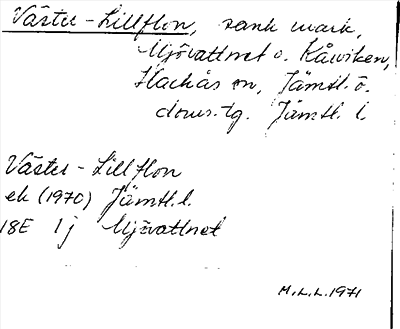 Väster-Lillflon, sank mark,
Mjövattnet o. Kåsviken,
Hackås sn, Jämtl. ö.
doms.tg. Jämtl. l
Väster-Lillflon
ek (1970) Jämtl. l.
18E 1j Mjövattnet
M.L.L. 1971